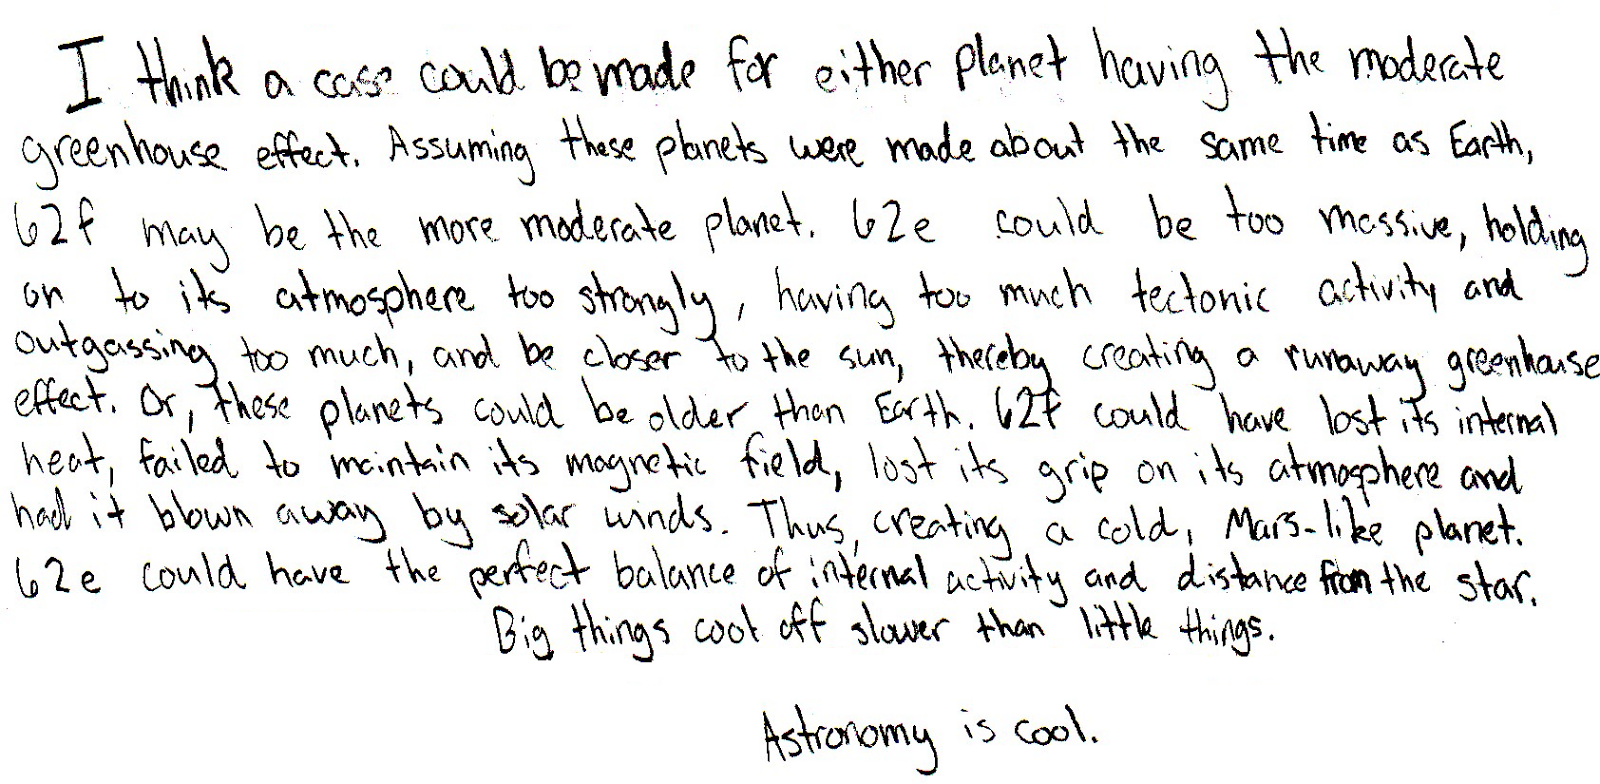 I think a case could be made for either planet having the moderate
greenhouse effect. Assuming these planets were made about the same time as Earth,
62f may be the more moderate planet. 62e could be too massive, holding
on to its atmosphere too strongly, having too much tectonic activity and
outgassing too much, and be closer to the sun, thereby creating a runaway greenhouse
effect. Or, these planets could be older than Earth. 62f could have lost its internal
heat, failed to maintain its magnetic field, lost its grip on its atmosphere and
had it blown away by solar winds. Thus, creating a cold, Mars-like planet.
62e could have the perfect balance of internal activity and distance from the star.
Big things cool off slower than little things.
Astronomy is cool.